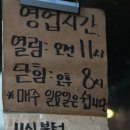 영업시간
열림: 오전 11시
닫힘: 오후 8시
*매주 일요일은 쉽니다
11시 부터